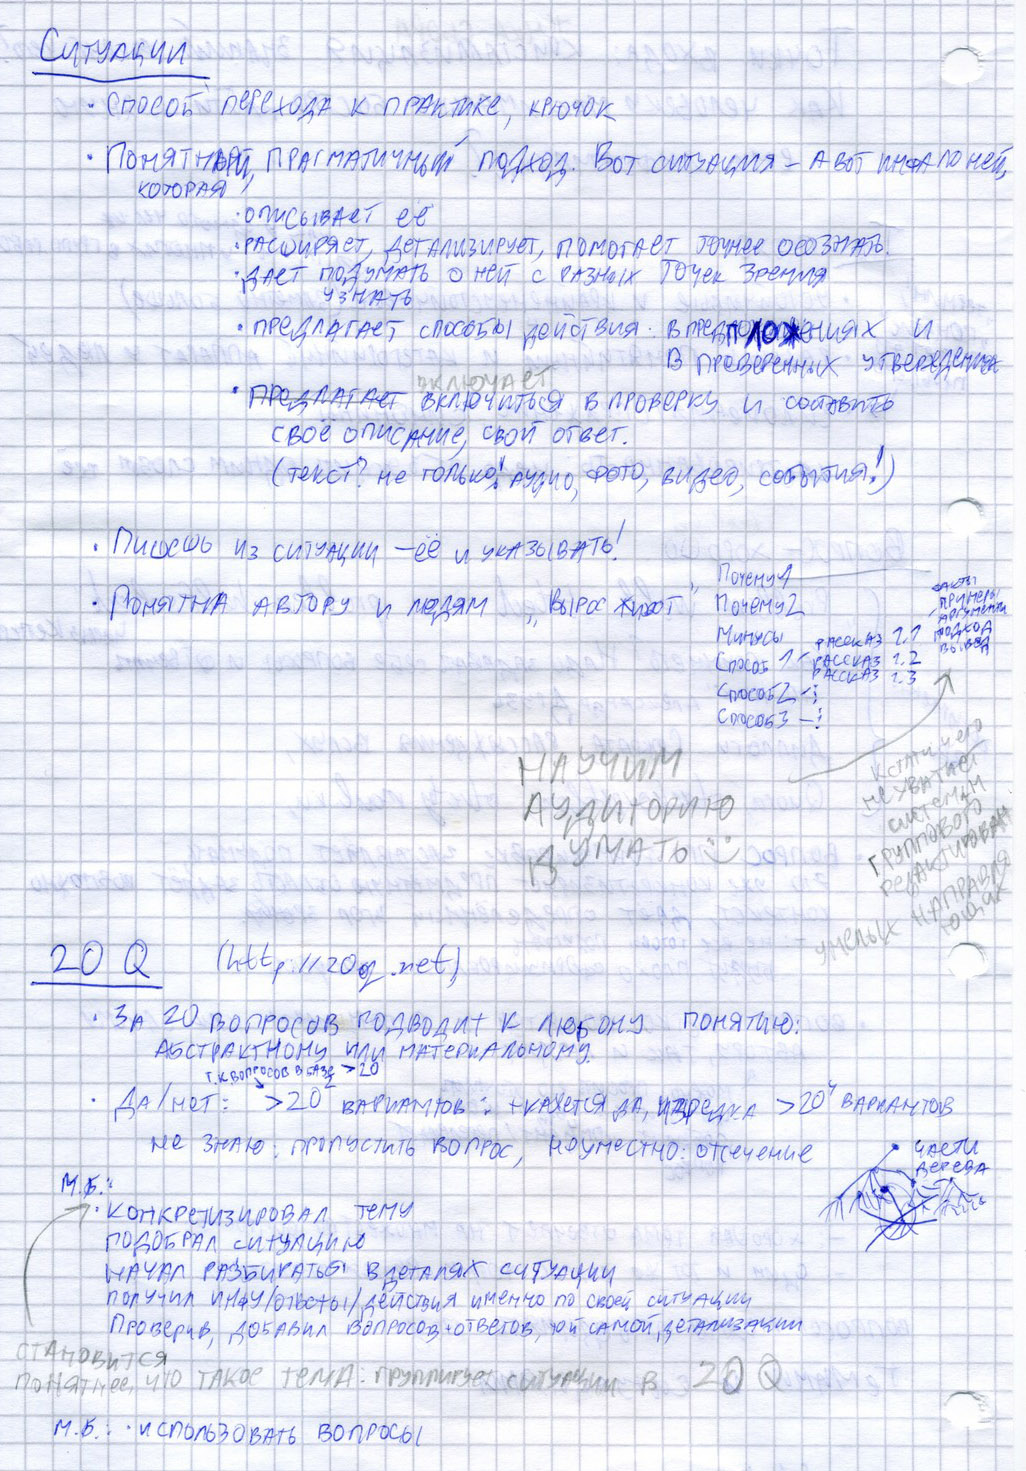 Ситуации
• Способ перехода к практике, крючок
• Понятный, прагматичный подход. Вот ситуация – а вот инфа по ней,
которая
• описывает её
• расширяет, детализирует, помогает точнее осознать.
• даёт подумать о ней с разных точек зрения
узнать
• предлагает способы действия: в предположениях и
в проверенных утверждениях
включает
• предлагает включиться в проверку и составить
своё описание, свой ответ.
(текст? не только! аудио, фото, видео, события!)
• Пишешь из ситуации – её и указывать!
• Понятна автору и людям „Вырос живот"
Почему 1
Почему 2
Минусы
Способ 1 – рассказ 1.1
рассказ 1.2
рассказ 1.3
Способ 2 –
Способ 3 –
факты
примеры
аргументы
подход
вывод
Научим
аудиторию
думать :)
Кстати чего
не хватает
системам
группового
редактирован
умелых направля
ющих
20 Q (http://20q.net)
• За 20 вопросов подводит к любому понятию:
абстрактному или материальному.
т.к. вопросов в базе >20
• Да/нет: >20² вариантов: +кажется да, изредка >20⁴ вариантов
не знаю: пропустить вопрос, неуместно: отсечение
части
дерева
М.б.:
• конкретизировал тему
подобрал ситуацию
начал разбираться в деталях ситуации
получил инфу/ответы/действия именно по своей ситуации
Проверив, добавил вопросов+ответов, той самой детализации
становится
понятнее, что такое тема: группирует ситуации в 20Q
М.б.: • использовать вопросы